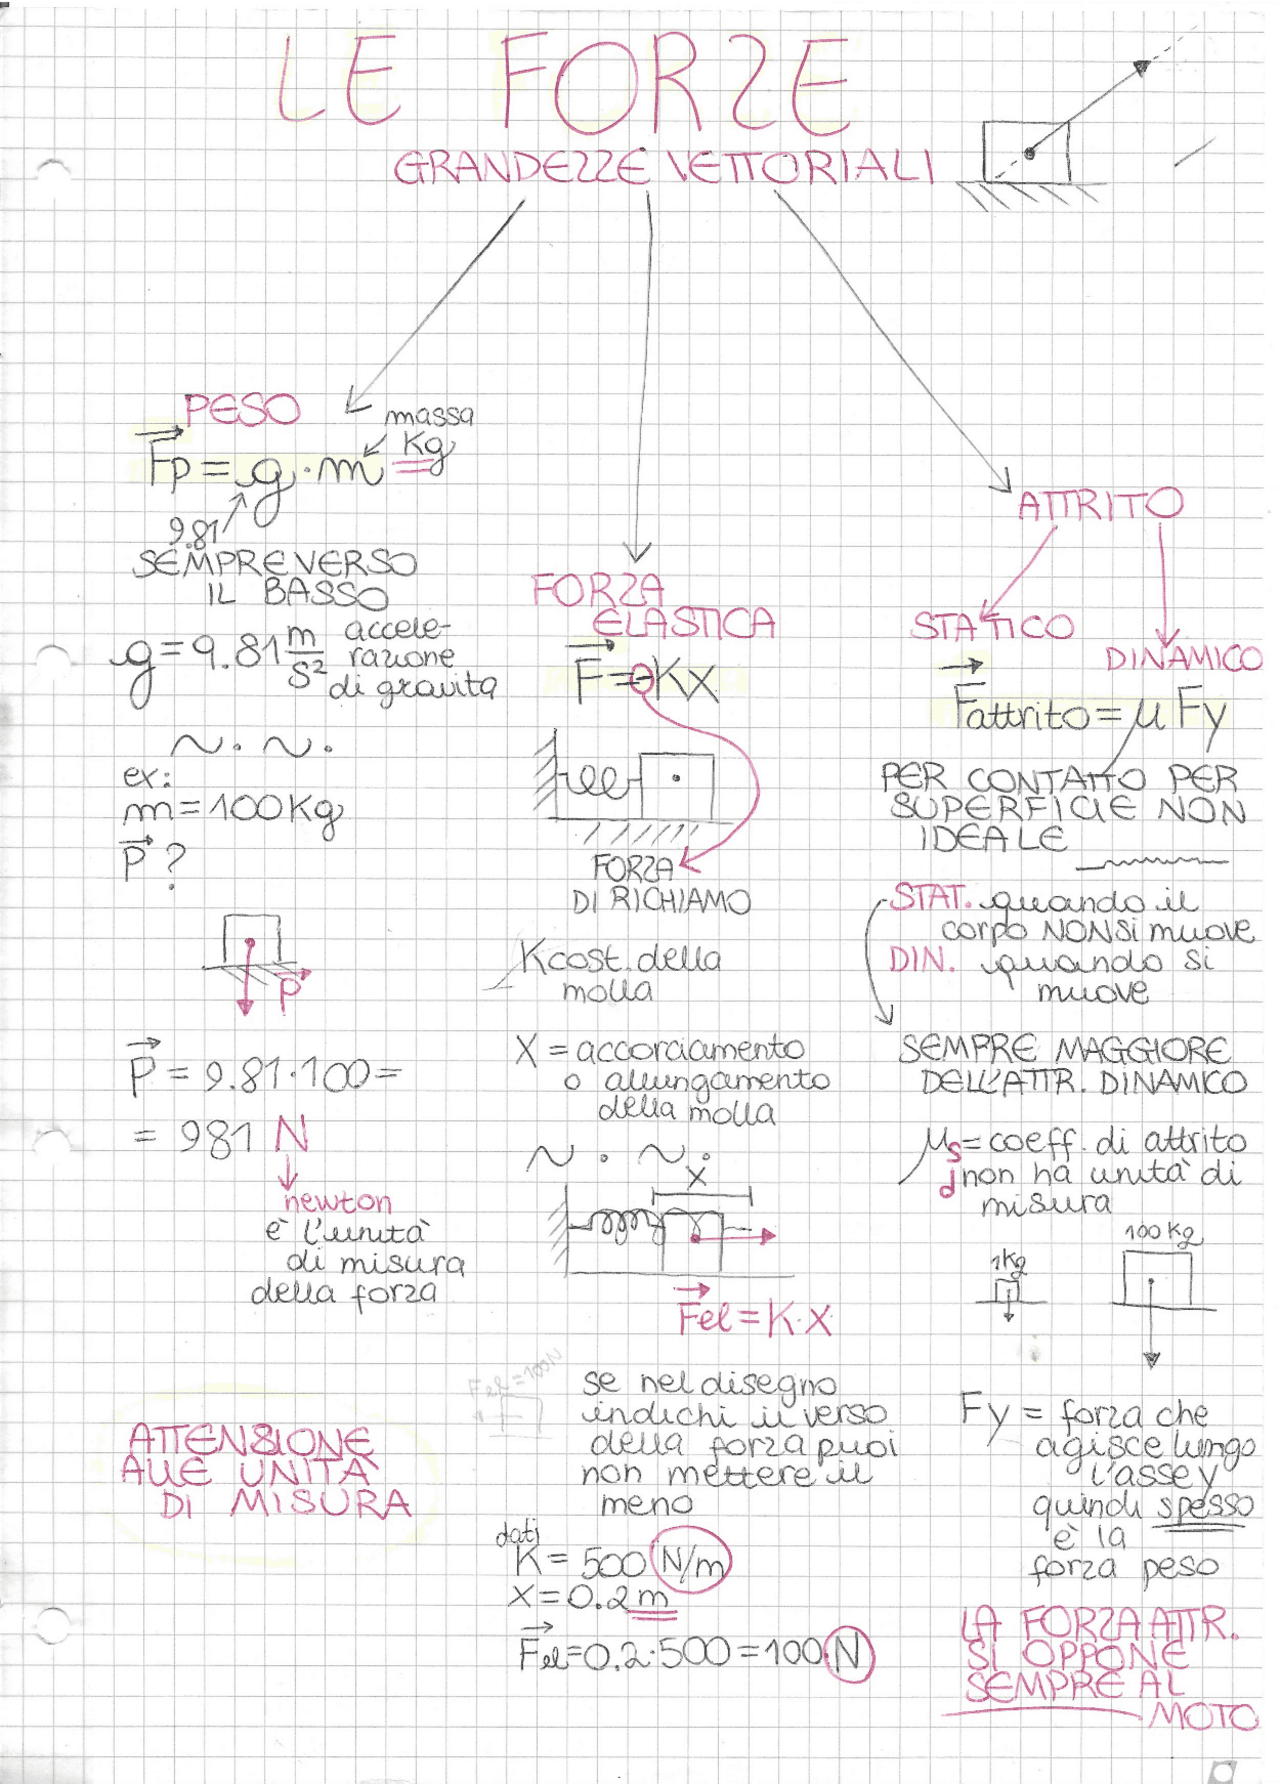 LE FORZE
GRANDEZZE VETTORIALI
PESO
massa
Kg
Fp = g · m
9.81
SEMPRE VERSO
IL BASSO
g = 9.81 m/s² accele-
razione
di gravita
~ . ~ .
ex:
m = 100 Kg
P ?
P
P = 9.81 · 100 =
= 981 N
newton
è l'unità
di misura
della forza
ATTENZIONE
ALLE UNITÀ
DI MISURA
FORZA
ELASTICA
F = -Kx
FORZA
DI RICHIAMO
K cost. della
molla
X = accorciamento
o allungamento
della molla
~ . ~ .
X
Fel = K · X
Fel = 100N
se nel disegno
indichi il verso
della forza puoi
non mettere il
meno
dati
K = 500 N/m
X = 0.2 m
Fel = 0.2 · 500 = 100 N
ATTRITO
STATICO
DINAMICO
Fattrito = μ Fy
PER CONTATTO PER
SUPERFICIE NON
IDEALE
STAT. quando il
corpo NON si muove
DIN. quando si
muove
SEMPRE MAGGIORE
DELL'ATTR. DINAMICO
μs = coeff. di attrito
d non ha unità di
misura
1Kg
100 Kg
Fy = forza che
agisce lungo
l'asse y
quindi spesso
è la
forza peso
LA FORZA ATTR.
SI OPPONE
SEMPRE AL
MOTO